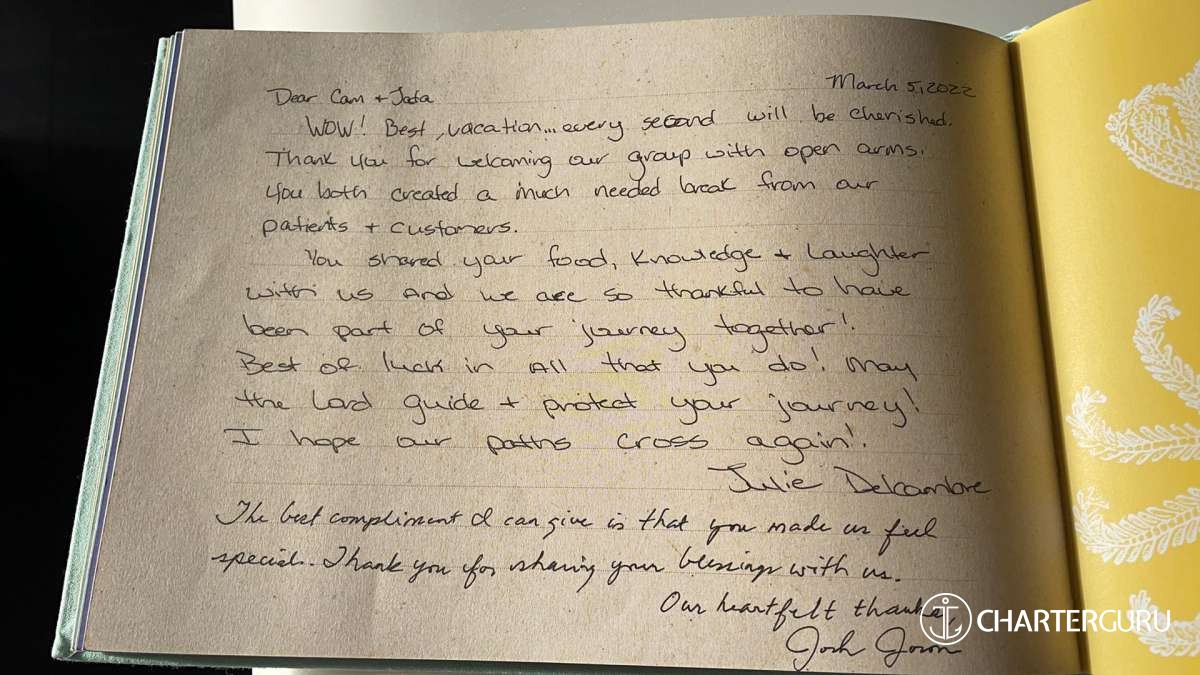 March 5, 2022
Dear Cam + Jada
WOW! Best vacation... every second will be cherished.
Thank you for welcoming our group with open arms.
You both created a much needed break from our
patients + customers.
You shared your food, knowledge + laughter
with us and we are so thankful to have
been part of your journey together!
Best of luck in All that you do! May
the Lord guide + protect your journey!
I hope our paths cross again!
Julie Delcambre
The best compliment I can give is that you made us feel
special. Thank you for sharing your blessings with us.
Our heartfelt thanks,
Josh
CHARTERGURU